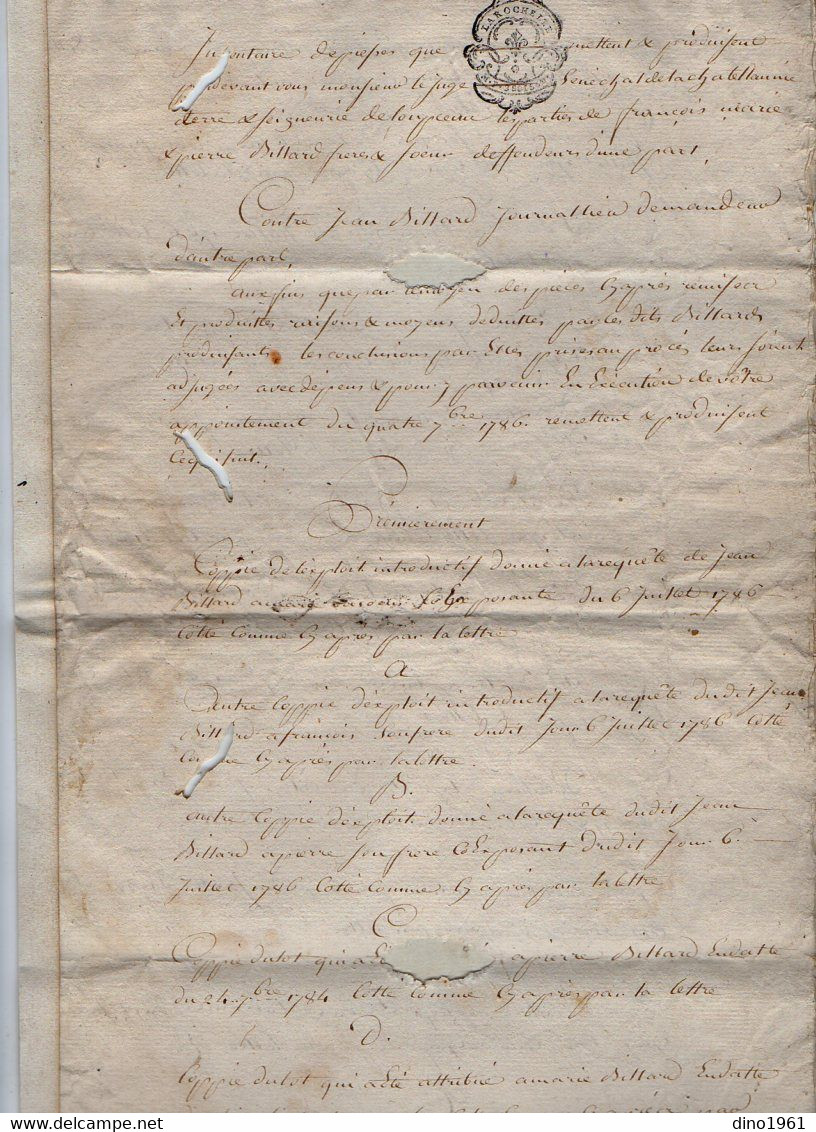 LA ROCHELLE
Inventaire de pieses que remettent & produisent
pardevant vous monsieur le juge Sénéchal de la chatellannie
terre & seigneurie de loupseau les parties de françois, marie
& pierre Billard freres & soeur deffendeurs d'une part,
Contre Jean Billard Journallier demandeur
d'autre part,
aux fins que par le moyen des pièces cy après remises
Et produittes raisons & moyens deduittes par les dits Billards
produisants les conclusions par Elles prises au procès leurs soient
adjugées avec dépens & pour y parvenir En Exécution de votre
appointement du quatre 7bre 1786 remettent & produisent
ce qui suit.
Prémierement
Coppie de l'exploit introductif donné a la requête de Jean
Billard a marie sa soeur CoExposante du 6 Juillet 1786
Cotté Comme cy après par la lettre
A
autre Coppie d'exploit introductif a la requête du dit Jean
Billard a francois son frere du dit Jour 6 Juillet 1786 Cotté
Comme cy après par la lettre.
B.
autre Coppie d'exploit donné a la requête du dit Jean
Billard a pierre son frere CoExposant du dit Jour 6
Juillet 1786 Cotté Comme cy après par la lettre
C
Coppie du lot qui a Eté a pierre Billard En datte
du 24 7bre 1784 Cotté Comme cy après par la lettre
D.
Coppie du lot qui a Eté attribué a marie Billard En datte
dino1961